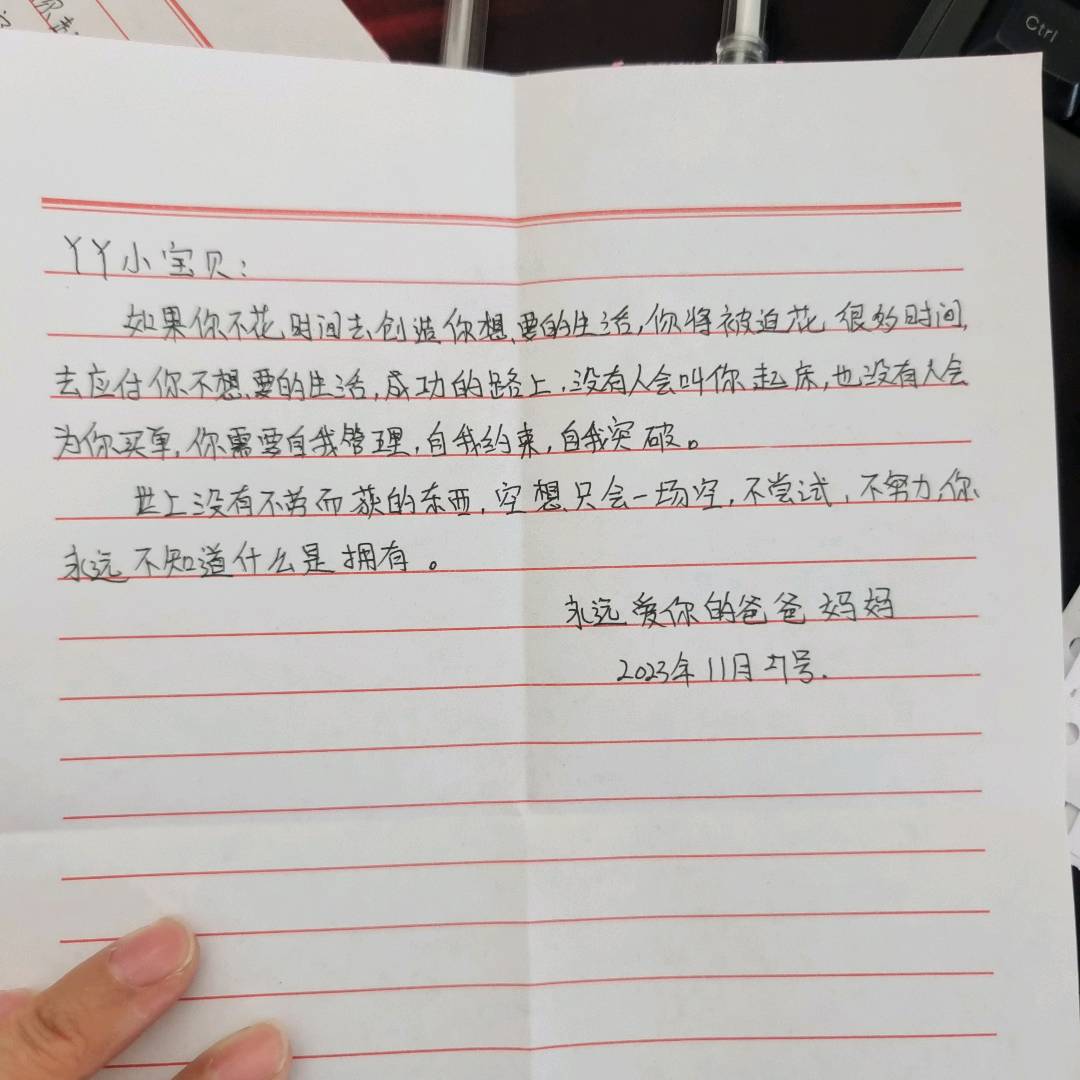 丫丫小宝贝：
如果你不花时间去创造你想要的生活，你将被迫花很多时间，
去应付你不想要的生活，成功的路上，没有人会叫你起床，也没有人会
为你买单，你需要自我管理，自我约束，自我突破。
世上没有不劳而获的东西，空想只会一场空，不尝试，不努力，你
永远不知道什么是拥有。
永远爱你的爸爸妈妈
2023年11月 号.
Ctrl